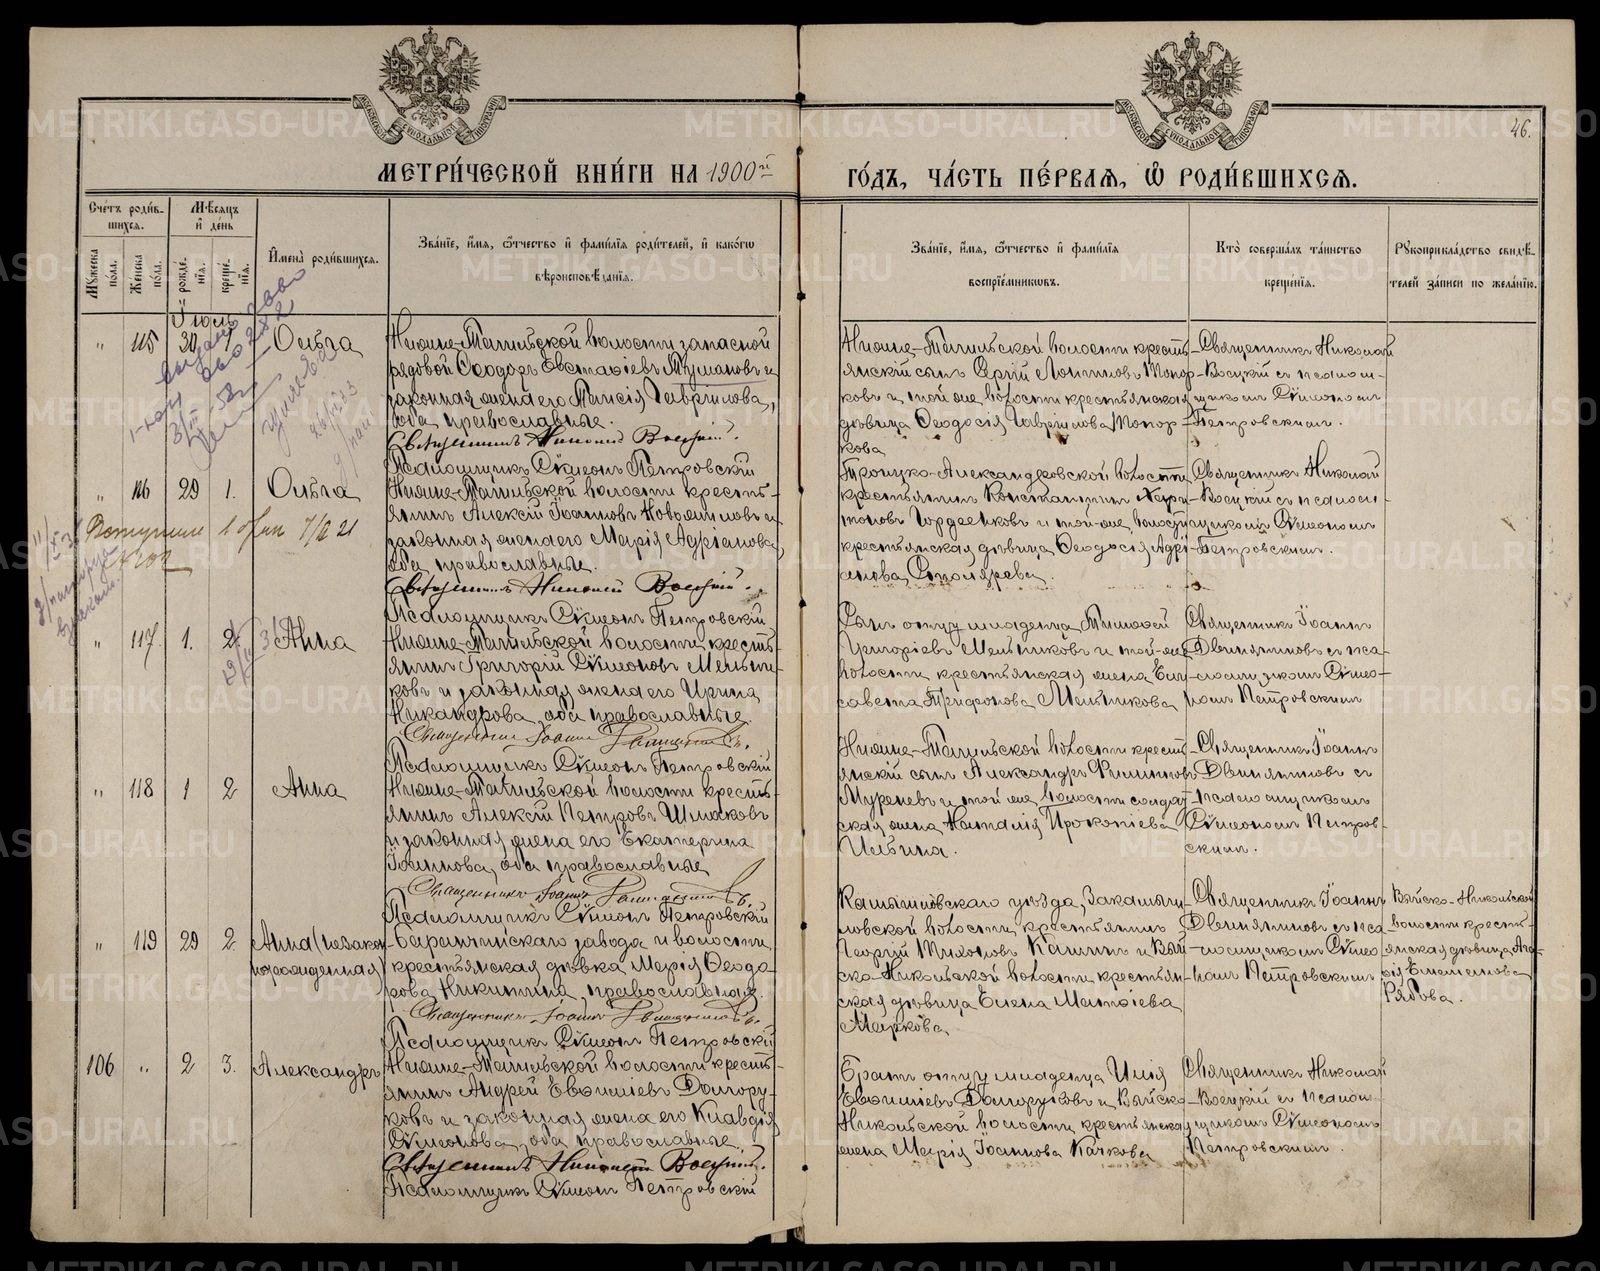 МЕТРИ́ЧЕСКОЙ КНИ́ГИ НА 1900й
ГО́ДЪ, ЧА́СТЬ ПЕ́РВАЯ, Ѽ РОДИ́ВШИХСЯ.
46.
Сче́тъ роди́в-
шихся.
Му́жеска по́ла.
Же́нска по́ла.
Мѣ́сяцъ
и҆ де́нь
рожде-
нїя.
креще́-
нїя.
И҆мена̀ роди́вшихся.
Зва́нїе, и҆́мя, ѻ҆́тчество и҆ фами́лїя роди́телей, и҆ како́гѡ
вѣроисповѣ́данїя.
Зва́нїе, и҆́мя, ѻ҆́тчество и҆ фами́лїя
воспрїе́мниковъ.
Кто̀ соверша́лъ та́инство
креще́нїя.
Рꙋкоприкла́дство свидѣ́-
телей за́писи по жела́нїю.
Іюль
" 115 30 1 Ольга
Нижне-Тагильской волости запасной
рядовой Ѳеодоръ Евстаѳіевъ Тумановъ и
законная жена его Таисія Гаврілова,
оба православные.
Священникъ Николай Воецкій.
Псаломщикъ Сѵмеонъ Петровскій
Нижне-Тагильской волости кресть-
янскій сын Сергій Логиновъ Топор-
ковъ и той же волости крестьянская
дѣвица Ѳеодосія Гаврілова Топор-
кова
Священникъ Николай
Воецкій съ псалом-
щикомъ Сѵмеономъ
Петровскимъ.
" 116 29 1. Ольга
Нижне-Тагильской волости кресть-
янинъ Алексій Іоанновъ Новожиловъ и
законная жена его Марія Адріанова,
оба православные.
Священникъ Николай Воецкій.
Псаломщикъ Сѵмеонъ Петровскій
Троицко-Александровской волости
крестьянинъ Константинъ Хари-
тоновъ Гордеенковъ и той-же волости
крестьянская дѣвица Ѳеодосія Адрі-
анова Столярева.
Священникъ Николай
Воецкій съ псалом-
щикомъ Сѵмеономъ
Петровскимъ.
" 117. 1. 2 Анна
Нижне-Тагильской волости кресть-
янинъ Григорій Сѵмеоновъ Мельни-
ковъ и законная жена его Ирина
Никандрова, оба православные.
Псаломщикъ Сѵмеонъ Петровскій
Сынъ отцу младенца Тимоѳей
Григоріевъ Мельниковъ и той-же
волости крестьянская жена Ели-
савета Трифонова Мельникова
Священникъ Іоаннъ
Двиняниновъ съ пса-
ломщикомъ Сѵмео-
номъ Петровскимъ
" 118 1 2 Анна
Нижне-Тагильской волости кресть-
янинъ Алексій Петровъ Шмаковъ
и законная жена его Екатерина
Іоаннова, оба православные
Псаломщикъ Сѵмеонъ Петровскій
Нижне-Тагильской волости кресть-
янскій сынъ Александръ Филиповъ
Муреневъ и той же волости солдат-
ская жена Наталія Прокопіева
Ильина.
Священникъ Іоаннъ
Двиняниновъ съ
псаломщикомъ
Сѵмеономъ Петров-
скимъ.
" 119 29 2 Анна (незакон-
норожденная)
Баранчинскаго завода и волости
крестьянская дѣвка Марія Ѳеодо-
рова Никитина, православная.
Псаломщикъ Сѵмеонъ Петровскій
Камышловскаго уѣзда, Закамыш-
ловской волости крестьянинъ
Георгій Тихоновъ Калинъ и Вый-
ско-Никольской волости крестьян-
ская дѣвица Елена Матѳіева
Маркова
Священникъ Іоаннъ
Двиняниновъ съ пса-
ломщикомъ Сѵмео-
номъ Петровскимъ
Выйско-Никольской
волости кресть-
янская дѣвица Ага-
ѳія Емельянова
Рябова.
106 " 2 3. Александръ
Нижне-Тагильской волости кресть-
янинъ Андрей Евѳиміевъ Долгору-
ковъ и законная жена его Клавдія
Сѵмеонова, оба православные
Священникъ Николай Воецкій.
Псаломщикъ Сѵмеонъ Петровскій
Братъ отцу младенца Илія
Евѳиміевъ Долгоруковъ и Выйско-
Никольской волости крестьянская
жена Марія Іоаннова Качкова
Священникъ Николай
Воецкій съ псалом-
щикомъ Сѵмеономъ
Петровскимъ.
METRIKI.GASO-URAL.RU